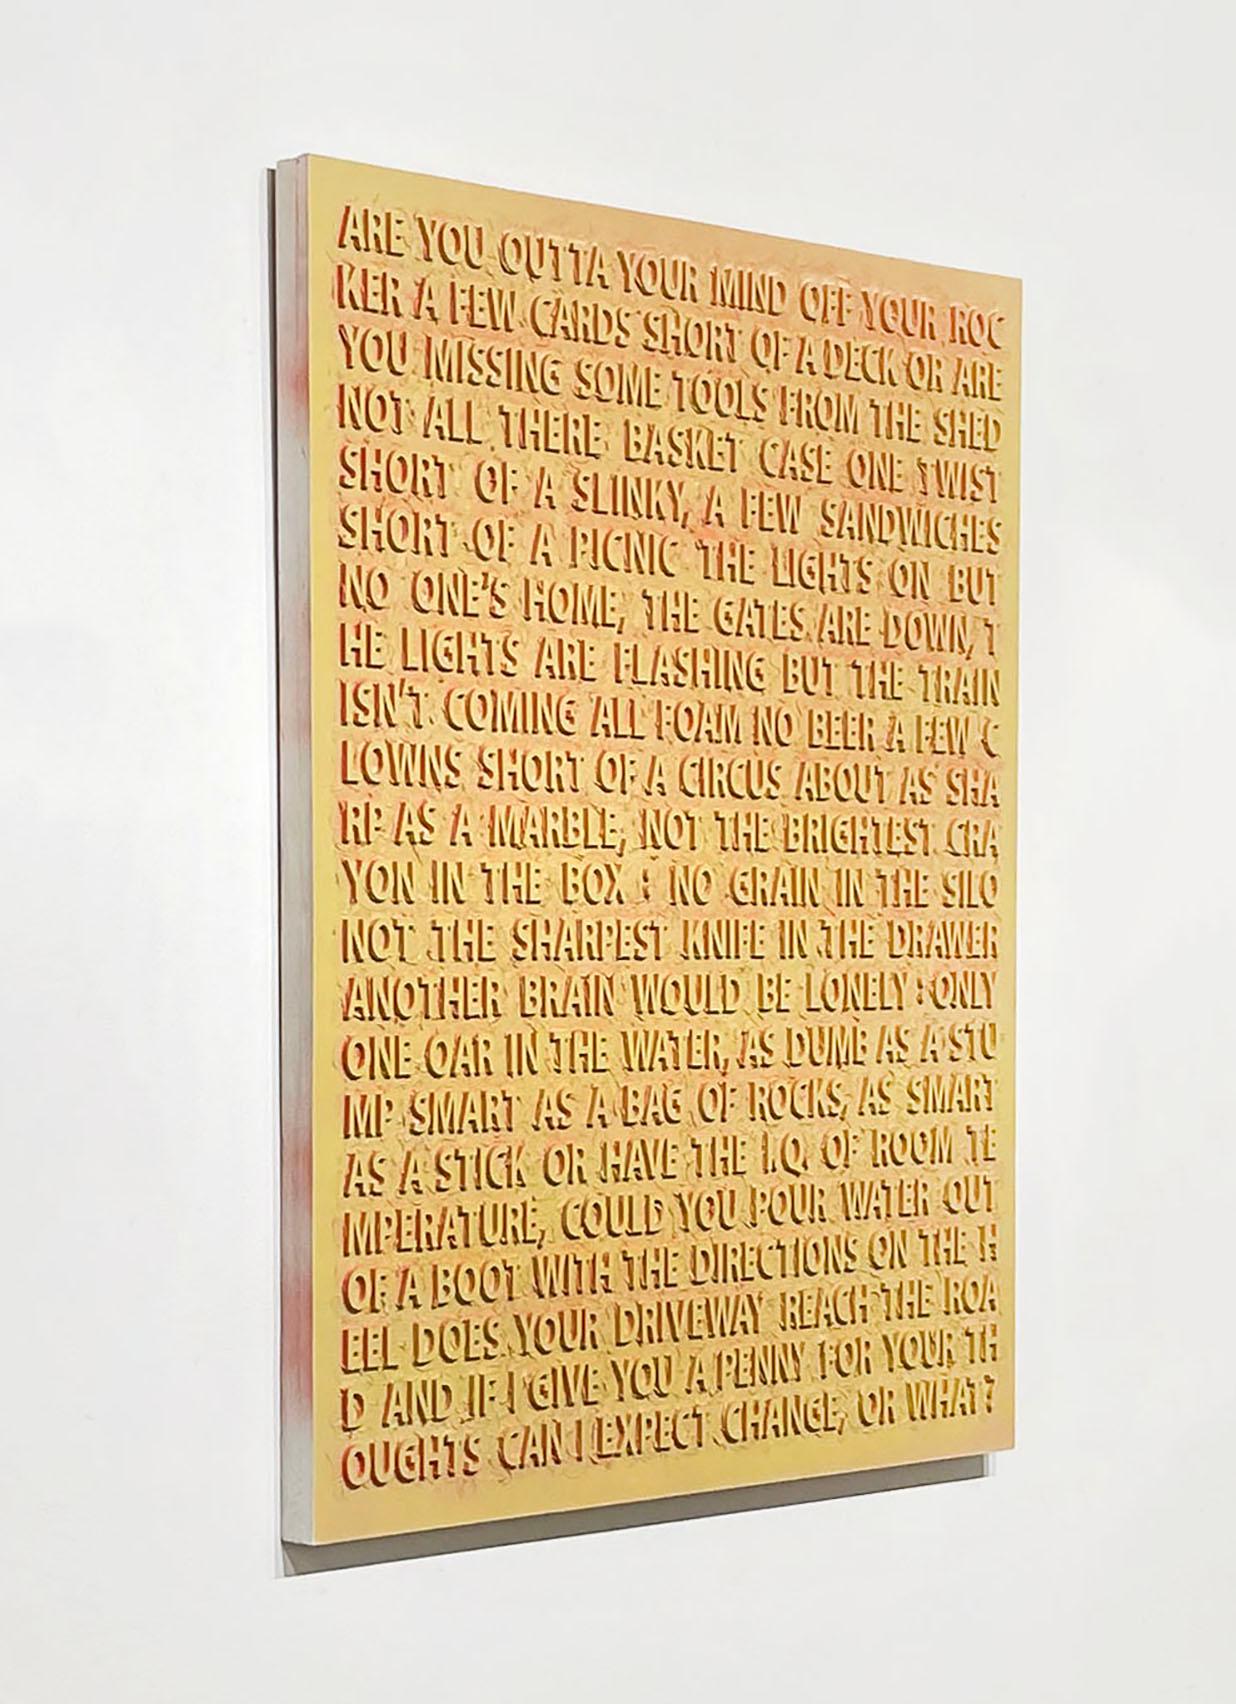 ARE YOU OUTTA YOUR MIND OFF YOUR ROC
KER A FEW CARDS SHORT OF A DECK OR ARE
YOU MISSING SOME TOOLS FROM THE SHED
NOT ALL THERE BASKET CASE ONE TWIST
SHORT OF A SLINKY, A FEW SANDWICHES
SHORT OF A PICNIC THE LIGHTS ON BUT
NO ONE'S HOME, THE GATES ARE DOWN, T
HE LIGHTS ARE FLASHING BUT THE TRAIN
ISN'T COMING ALL FOAM NO BEER A FEW C
LOWNS SHORT OF A CIRCUS ABOUT AS SHA
RP AS A MARBLE, NOT THE BRIGHTEST CRA
YON IN THE BOX : NO GRAIN IN THE SILO
NOT THE SHARPEST KNIFE IN THE DRAWER
ANOTHER BRAIN WOULD BE LONELY : ONLY
ONE OAR IN THE WATER, AS DUMB AS A STU
MP SMART AS A BAG OF ROCKS, AS SMART
AS A STICK OR HAVE THE I.Q. OF ROOM TE
MPERATURE, COULD YOU POUR WATER OUT
OF A BOOT WITH THE DIRECTIONS ON THE H
EEL DOES YOUR DRIVEWAY REACH THE ROA
D AND IF I GIVE YOU A PENNY FOR YOUR TH
OUGHTS CAN I EXPECT CHANGE, OR WHAT?